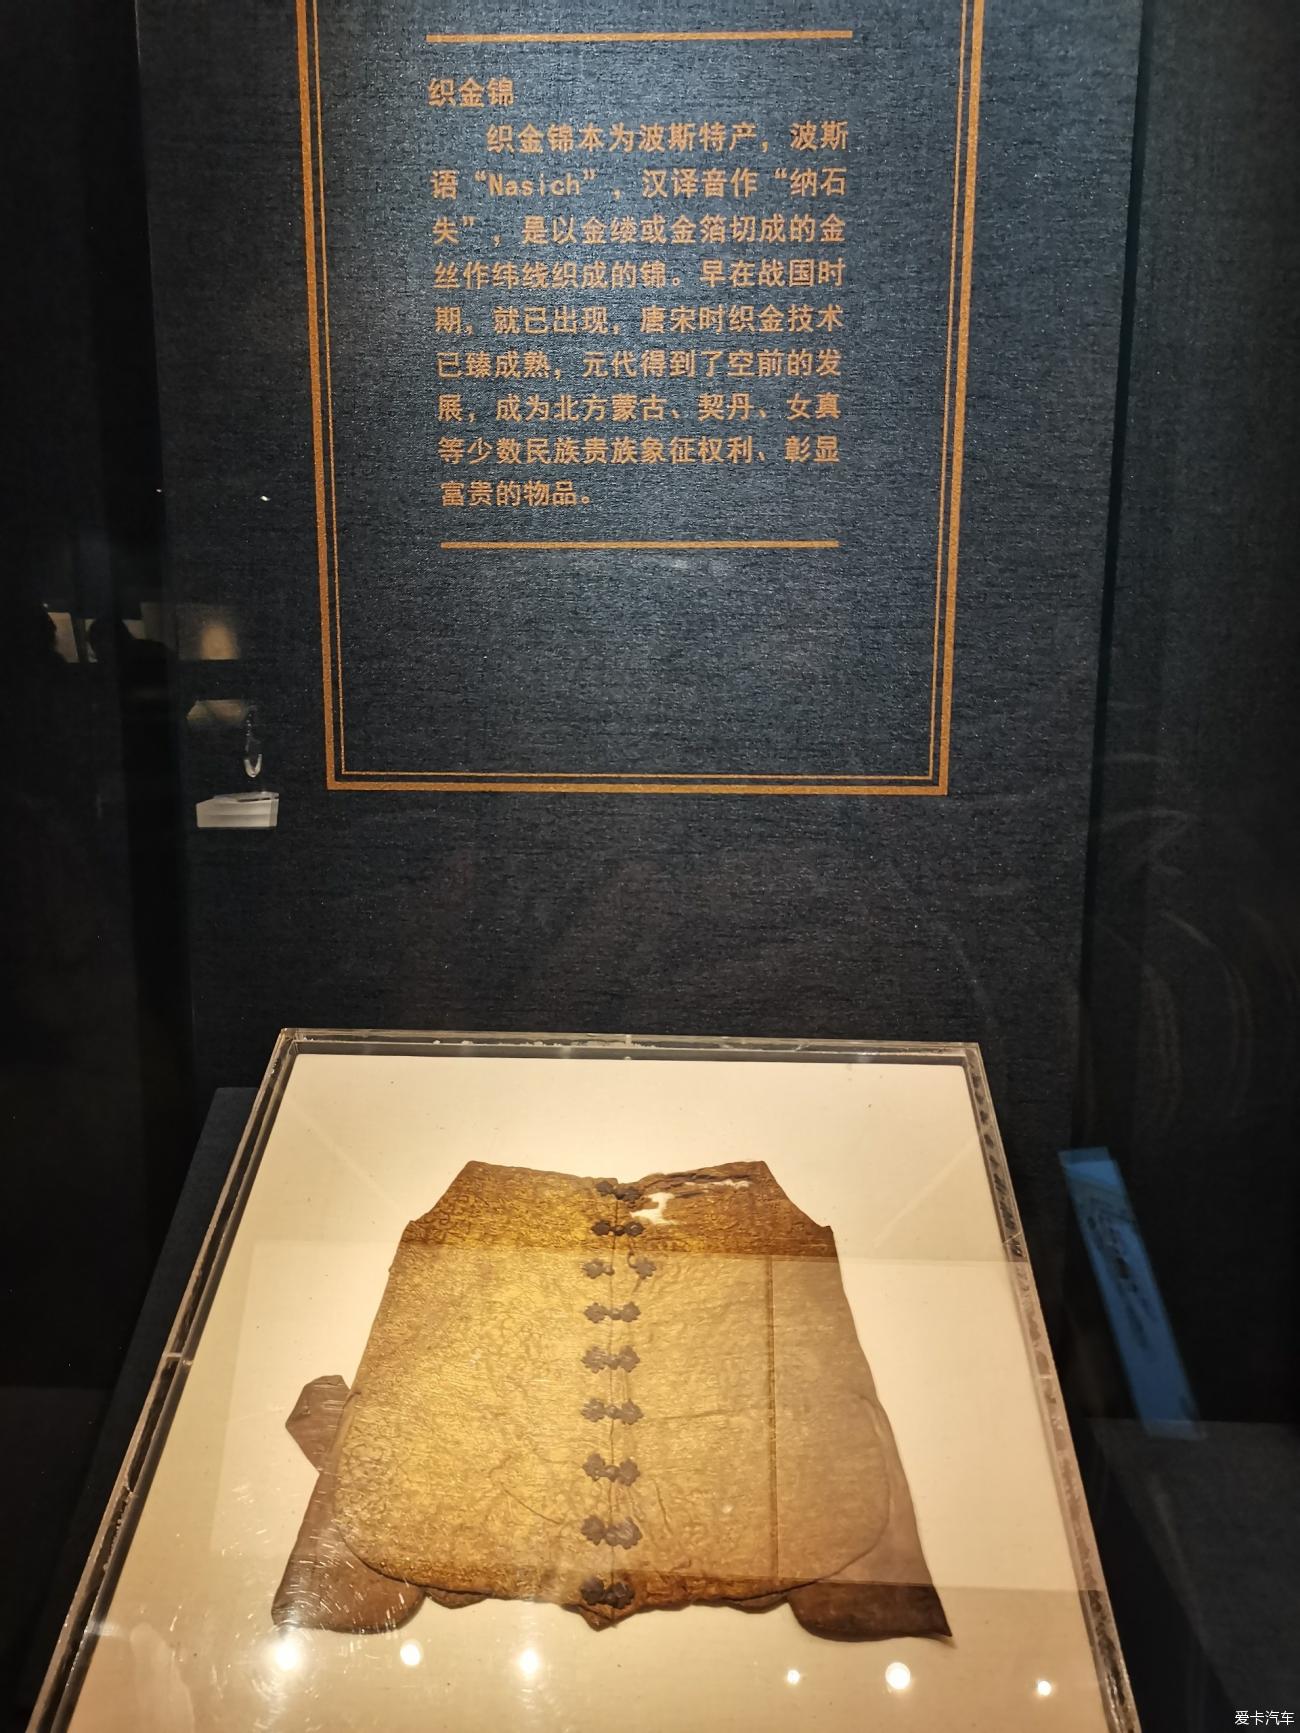 织金锦
织金锦本为波斯特产，波斯
语“Nasich”，汉译音作“纳石
失”，是以金缕或金箔切成的金
丝作纬线织成的锦。早在战国时
期，就已出现，唐宋时织金技术
已臻成熟，元代得到了空前的发
展，成为北方蒙古、契丹、女真
等少数民族贵族象征权利、彰显
富贵的物品。
爱卡汽车